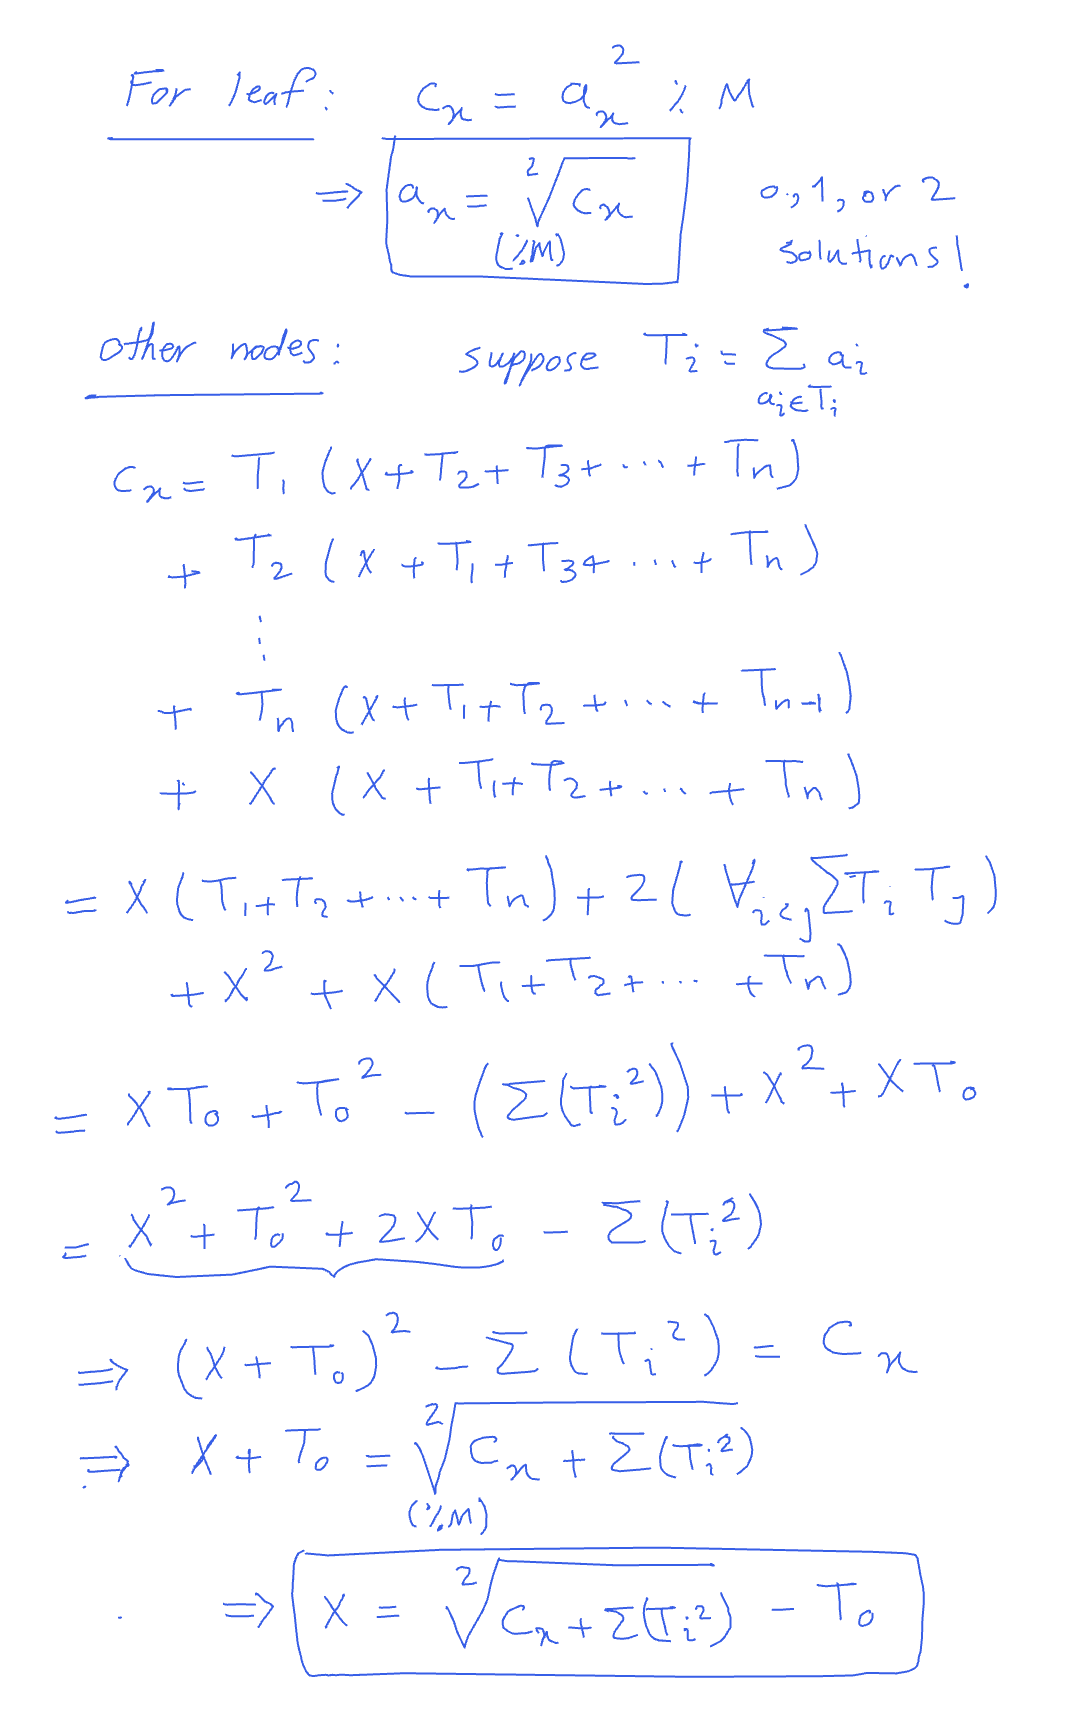 For leaf: Cx = ax² % M
=> ax = ²√Cx (%M) 0, 1, or 2
solutions!
other nodes: suppose Ti = Σ ai
ai∈Ti
Cx = T1 (X + T2 + T3 + ... + Tn)
+ T2 (X + T1 + T3 + ... + Tn)
⋮
+ Tn (X + T1 + T2 + ... + Tn-1)
+ X (X + T1 + T2 + ... + Tn)
= X (T1 + T2 + ... + Tn) + 2( ∀i<j ΣTi Tj)
+ X² + X (T1 + T2 + ... + Tn)
= X T0 + T0² - (Σ(Ti²)) + X² + X T0
= X² + T0² + 2XT0 - Σ(Ti²)
=> (X + T0)² - Σ (Ti²) = Cx
=> X + T0 = ²√Cx + Σ(Ti²)
(%M)
=> X = ²√Cx + Σ(Ti²) - T0